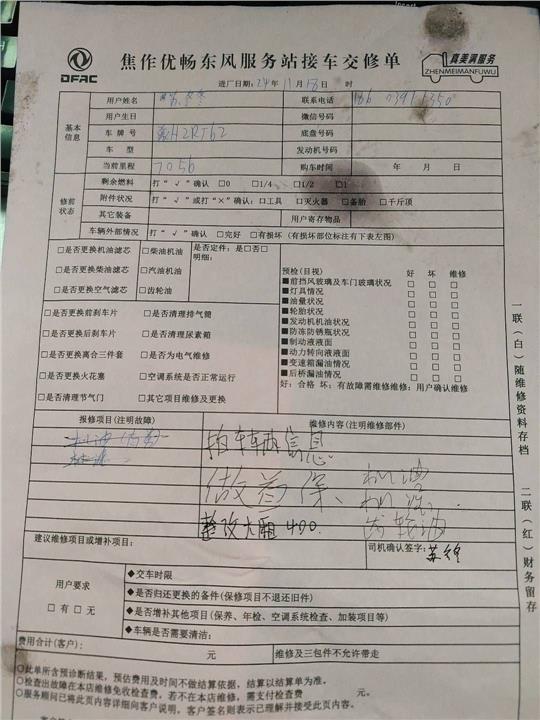 DFAC
焦作优畅东风服务站接车交修单
真美满服务
ZHENMEIMANFUWU
进厂日期:24年11月18日 时
基本信息
用户姓名 联系电话
用户生日 微信号码
车牌号 豫H2RT62 底盘号码
车型 发动机号码
当前里程 7056 购车时间 年 月 日
修前状态
剩余燃料 打“√”确认 □0 □1/4 □1/2 □1
附件状况 打“√”或打“×”确认:□工具 □灭火器 □备胎 □千斤顶
其它装备 用户寄存物品
车辆外部情况 打“√”确认 □完好 □有损坏(有损坏部位标注有下表左图)
□是否更换机油滤芯 □柴油机油 是否定件:是□否□
□是否更换柴油滤芯 □汽油机油 明细:
□是否更换空气滤芯 □齿轮油
□是否更换前刹车片 □是否清理排气筒
□是否更换后刹车片 □是否清理尿素箱
□是否更换离合三件套 □是否为电气维修
□是否更换火花塞 □空调系统是否正常运行
□是否清理节气门 □其它项目维修及更换
预检(目视) 好 坏 维修
■前挡风玻璃及车门玻璃状况 □ □ □
■灯具情况 □ □ □
■油量状况 □ □ □
■轮胎状况 □ □ □
■发动机机油状况 □ □ □
■防冻防锈瓶状况 □ □ □
■制动液液面 □ □ □
■动力转向液液面 □ □ □
■变速箱漏油情况 □ □ □
■后桥漏油情况 □ □ □
好:合格 坏:有故障需维修维修:用户确认维修
报修项目(注明故障) 维修内容(注明维修部件)
拍车辆信息
做首保、机油
机滤
整改大厢400. 齿轮油
建议维修项目或增补项目: 司机确认签字:
用户要求
□有□无
◆交车时限
◆是否归还更换的备件(保修项目不退还旧件)
◆是否增补其他项目(保养、年检、空调系统检查、加装项目等)
◆车辆是否需要清洁:
费用合计(客户): 元 维修及三包件不允许带走
○此单所含预诊断结果,预估费用及时间不做结算依据,结算以结算单为准。
○检查出故障在本店维修免收检查费,若不在本店维修,需支付检查费 元。
○服务顾问已将此页内容详细向客户说明,客户签名则表示已理解并接受此页内容。
一联(白)随维修资料存档
二联(红)财务留存